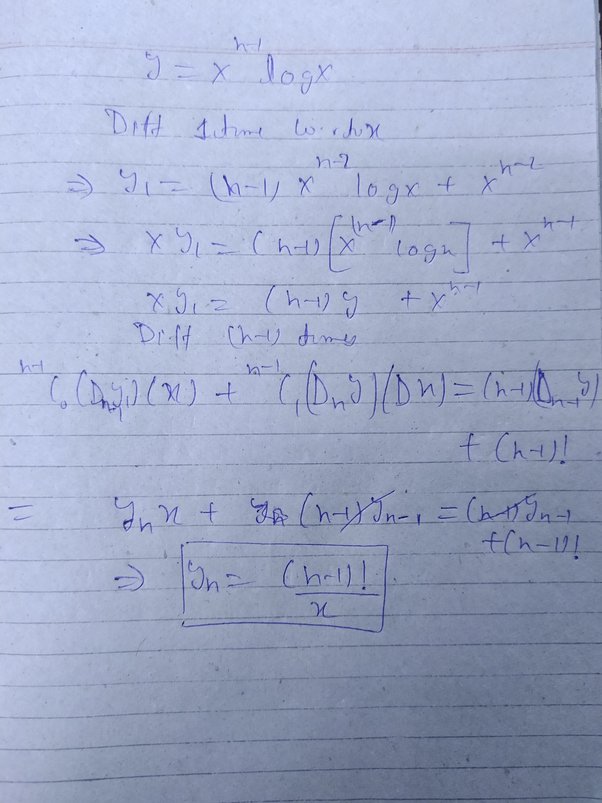 y = x^{n-1} logx
Diff 1 time w.r.to x
⇒ y₁ = (n-1) x^{n-2} logx + x^{n-2}
⇒ x y₁ = (n-1) [x^{(n-1)} logx] + x^{n-1}
x y₁ = (n-1) y + x^{n-1}
Diff (n-1) times
^{n-1}C₀ (D_{n-1}y₁) (x) + ^{n-1}C₁ (D_n y) (Dx) = (n-1)(D_{n-1} y)
+ (n-1)!
= y_n x + (n-1) y_{n-1} = (n-1) y_{n-1}
+ (n-1)!
⇒ y_n = (n-1)! / x